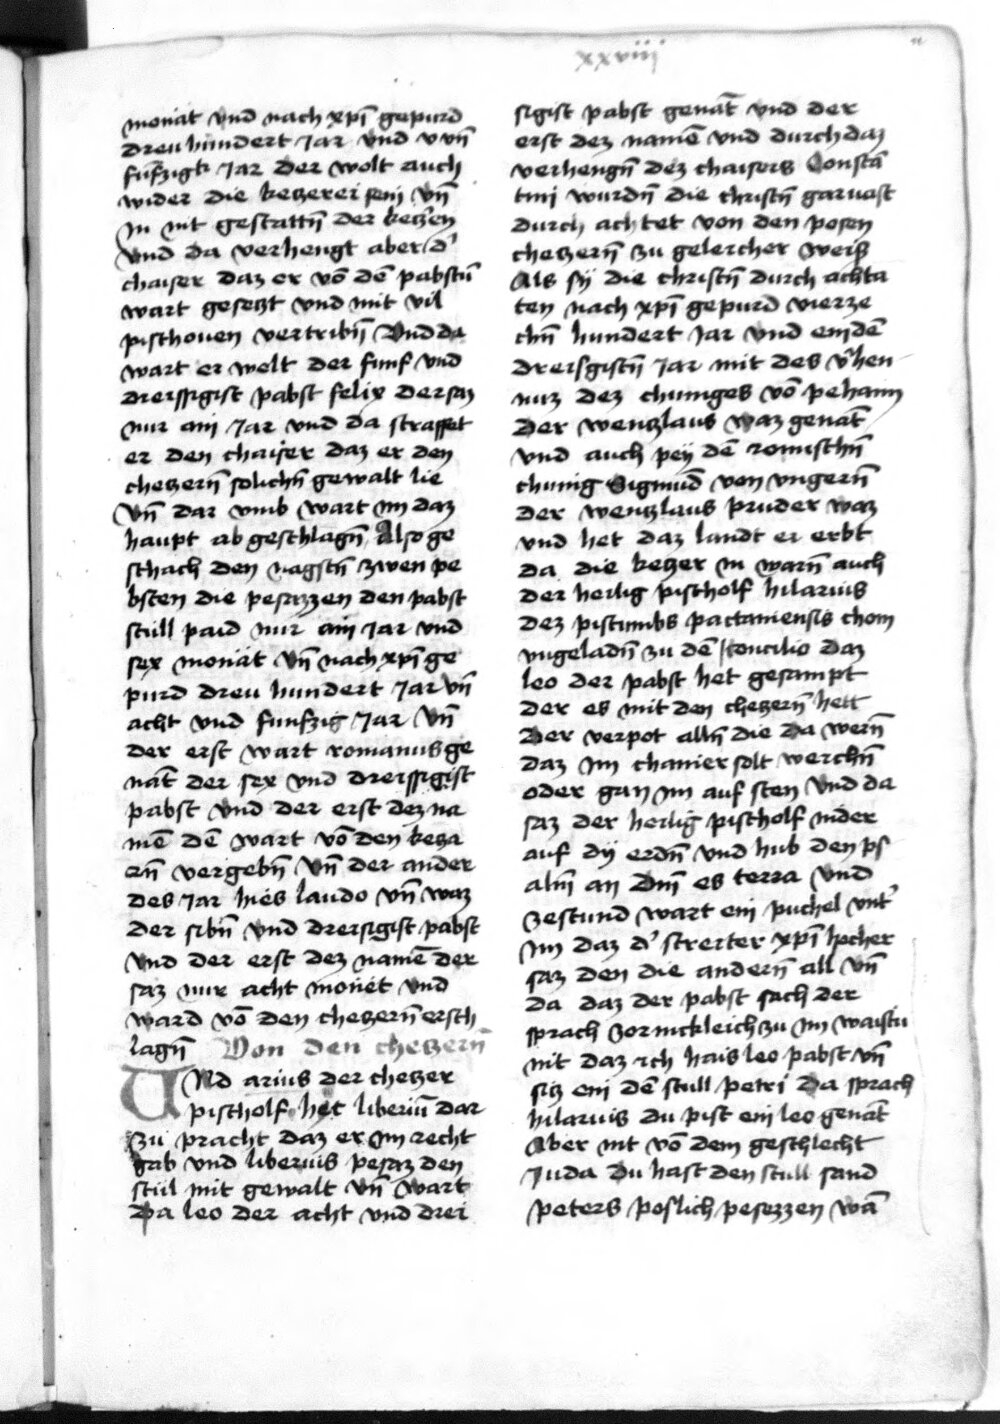 xxviii
monat vnd nach xp̄i gepurd
dreu hundert Jar vnd v vn̄
funfzigk Jar der wolt auch
wider die keczerei sein Vn̄
jn nit gestattn̄ der keczen
Vnd da verhengt aber d'
chaiser daz er vō dē pabstū
wart geseczt vnd mit vil
pischouen vertribn̄ Vnd da
wart er welt der funf vnd
dreissigist pabst felix der saz
nur ain Jar vnd da straffet
er den chaiser daz er den
checzern̄ solichn̄ gewalt lie
Vn̄ dar vmb wart im daz
haupt ab geschlagn̄ Also ge
schach den nagstn̄ zwen pe
bsten die pesazzen den pabst
stull paid nur ain Jar vnd
sex monat Vn̄ nach xp̄i ge
purd dreu hundert Jar vn̄
acht vnd funfzig Jar Vn̄
der erst wart romanus ge
nāt der sex vnd dreissigist
pabst vnd der erst dez na
mē dē wart vō den kecza
rn̄ vergebn̄ Vn̄ der ander
des Jar hies laudo vn̄ waz
der sibn̄ vnd dreisigist pabst
Vnd der erst dez namē der
saz nur acht monet vnd
ward vō den checzern̄ ersch
lagn̄ Von den checzern̄
VNd arius der checzer
pischolf het liberiū dar
zu pracht daz er im recht
gab vnd liberuis pesaz den
stul mit gewalt vn̄ wart
Da leo der acht vnd drei
sigist pabst genāt vnd der
erst dez namē vnd durch daz
verhengn̄ dez chaisers Constā
tini wurdn̄ die christn̄ gar vast
durch achtet von den posen
checzern̄ zu geleicher weis
Als sÿ die christn̄ durch achta
ten nach xp̄i gepurd vierze
chn̄ hundert Jar vnd in dē
dreisgistn̄ Jar mit des v'hen
nuz dez chuniges vō pehaim
Der wenczlaus waz genāt
vnd auch peÿ dē romischn̄
chunig Sigmūd von vngern̄
der wenczlaus pruder waz
vnd het daz landt er erbt
da die keczer in warn̄ auch
der heilig pischolf hilaruis
dez pistumbs pactaniensis chom
vngeladn̄ zu dē concilio daz
leo der pabst het gesampt
der es mit den checzern̄ hett
Der verpot alln̄ die da wern̄
daz im chainer solt werchn̄
oder gan im auf sten Vnd da
saz der heilig pischolf nider
auf dÿ erdn̄ vnd hub den ps
alm̄ an Dm̄ es terra Vnd
zestund wart ein puchel vnt'
im daz d' streiter xp̄i hocher
saz den die andern̄ all vn̄
da daz der pabst sach der
sprach zornickleich zu im waistu
nit daz ich hais leo pabst vn̄
siz in dē stull petri Da sprach
hilaruis du pist ein leo genāt
Aber nit vō dem geschlecht
Juda Du hast den stull sand
peters poslich pesezzen wā